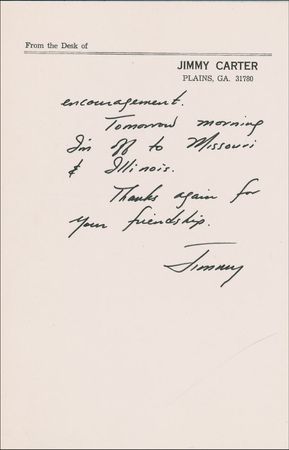 From the Desk of
JIMMY CARTER
PLAINS, GA. 31780
encouragement.
Tomorrow morning
I'm off to Missouri
& Illinois.
Thanks again for
your friendship.
Jimmy